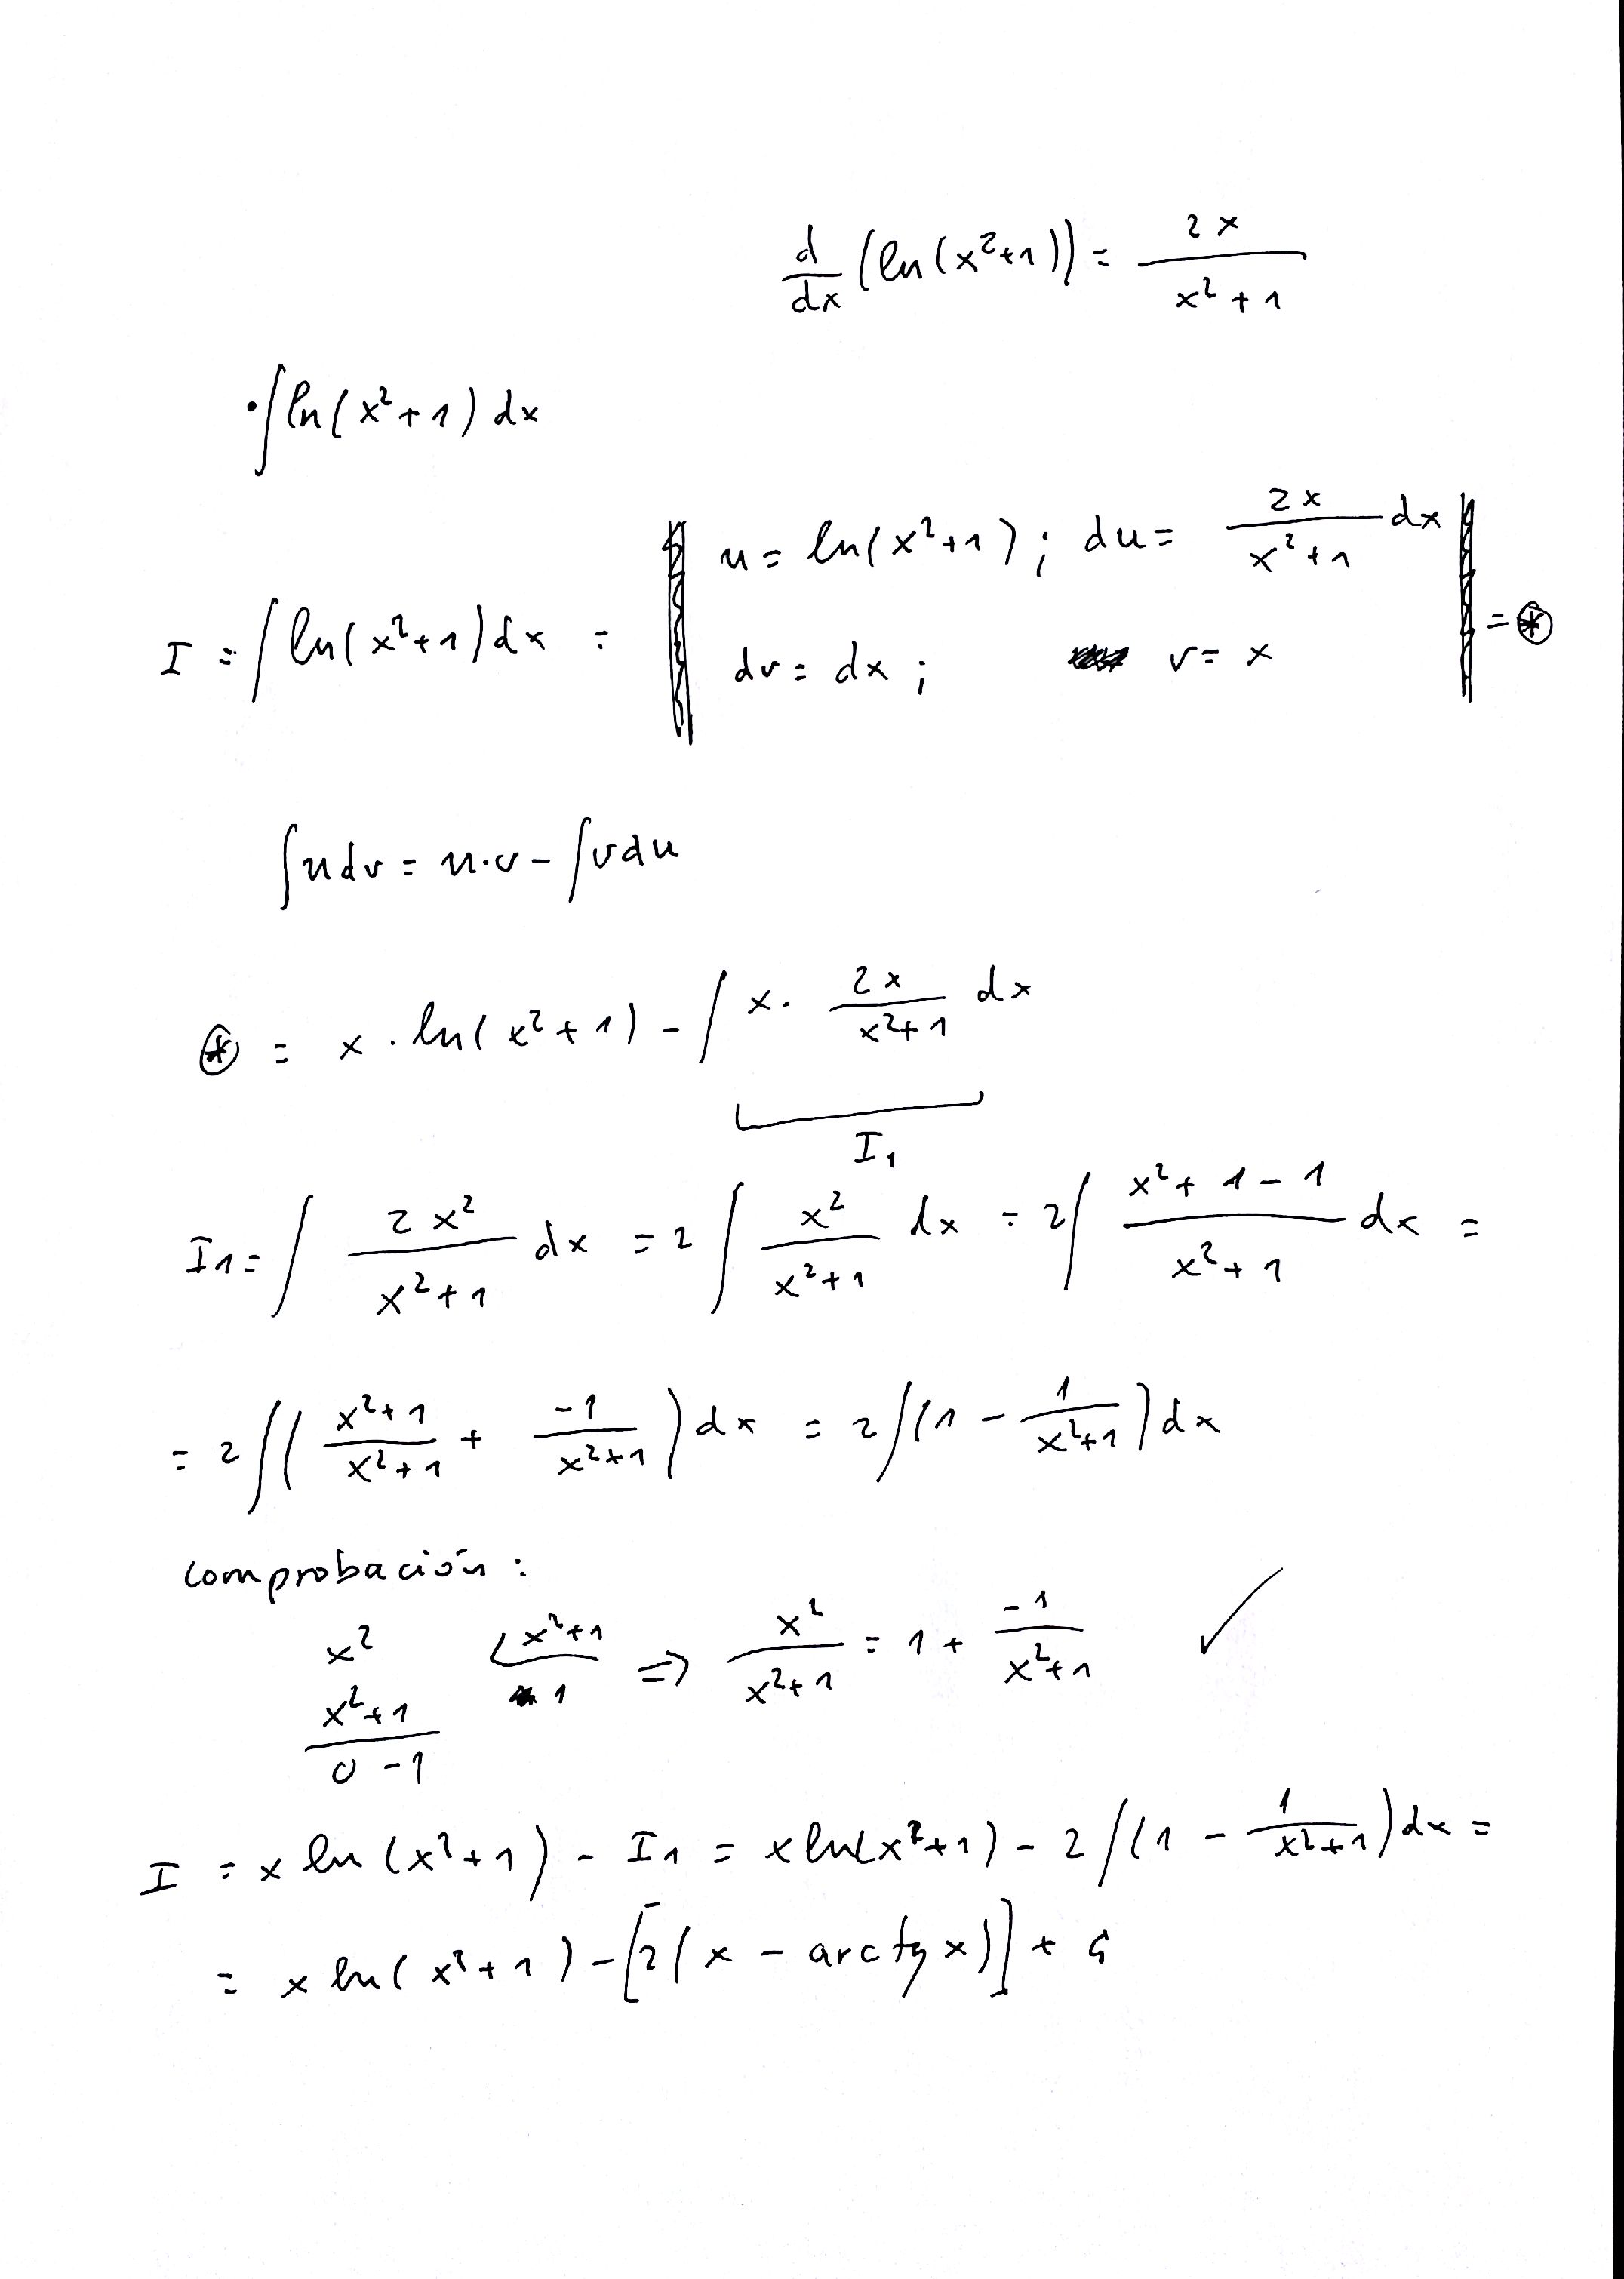 d/dx (ln(x²+1)) = 2x/(x²+1)
· ∫ ln(x²+1) dx
I = ∫ ln(x²+1) dx = || u = ln(x²+1); du = 2x/(x²+1) dx
dv = dx; v = x || = ⊛
∫ u dv = u·v - ∫ v du
⊛ = x · ln(x²+1) - ∫ x · 2x/(x²+1) dx
I₁
I1 = ∫ 2x²/(x²+1) dx = 2 ∫ x²/(x²+1) dx = 2 ∫ (x²+1-1)/(x²+1) dx =
= 2 ∫ ( (x²+1)/(x²+1) + -1/(x²+1) ) dx = 2 ∫ (1 - 1/(x²+1)) dx
comprobación:
x² | x²+1 ⇒ x²/(x²+1) = 1 + -1/(x²+1) ✓
x²+1 1
0 -1
I = x ln(x²+1) - I1 = x ln(x²+1) - 2 ∫ (1 - 1/(x²+1)) dx =
= x ln(x²+1) - [2(x - arctg x)] +